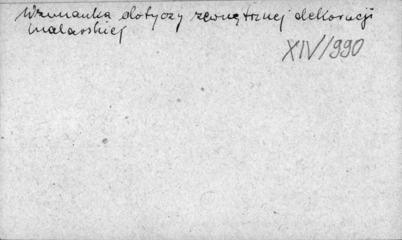 Wzmianka dotyczy zewnętrznej dekoracji
malarskiej
XIV/990